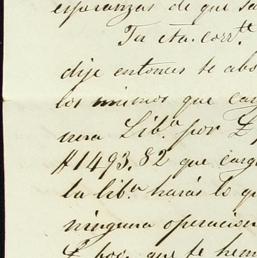 esperanzas de que Ta
Tu cta. corr.te
dije entonces se abo
los mismos que carg
nera Lib.a por £
$1493.82 que carg
la lib.a harás lo qu
ninguna operacion
£ por que te hem